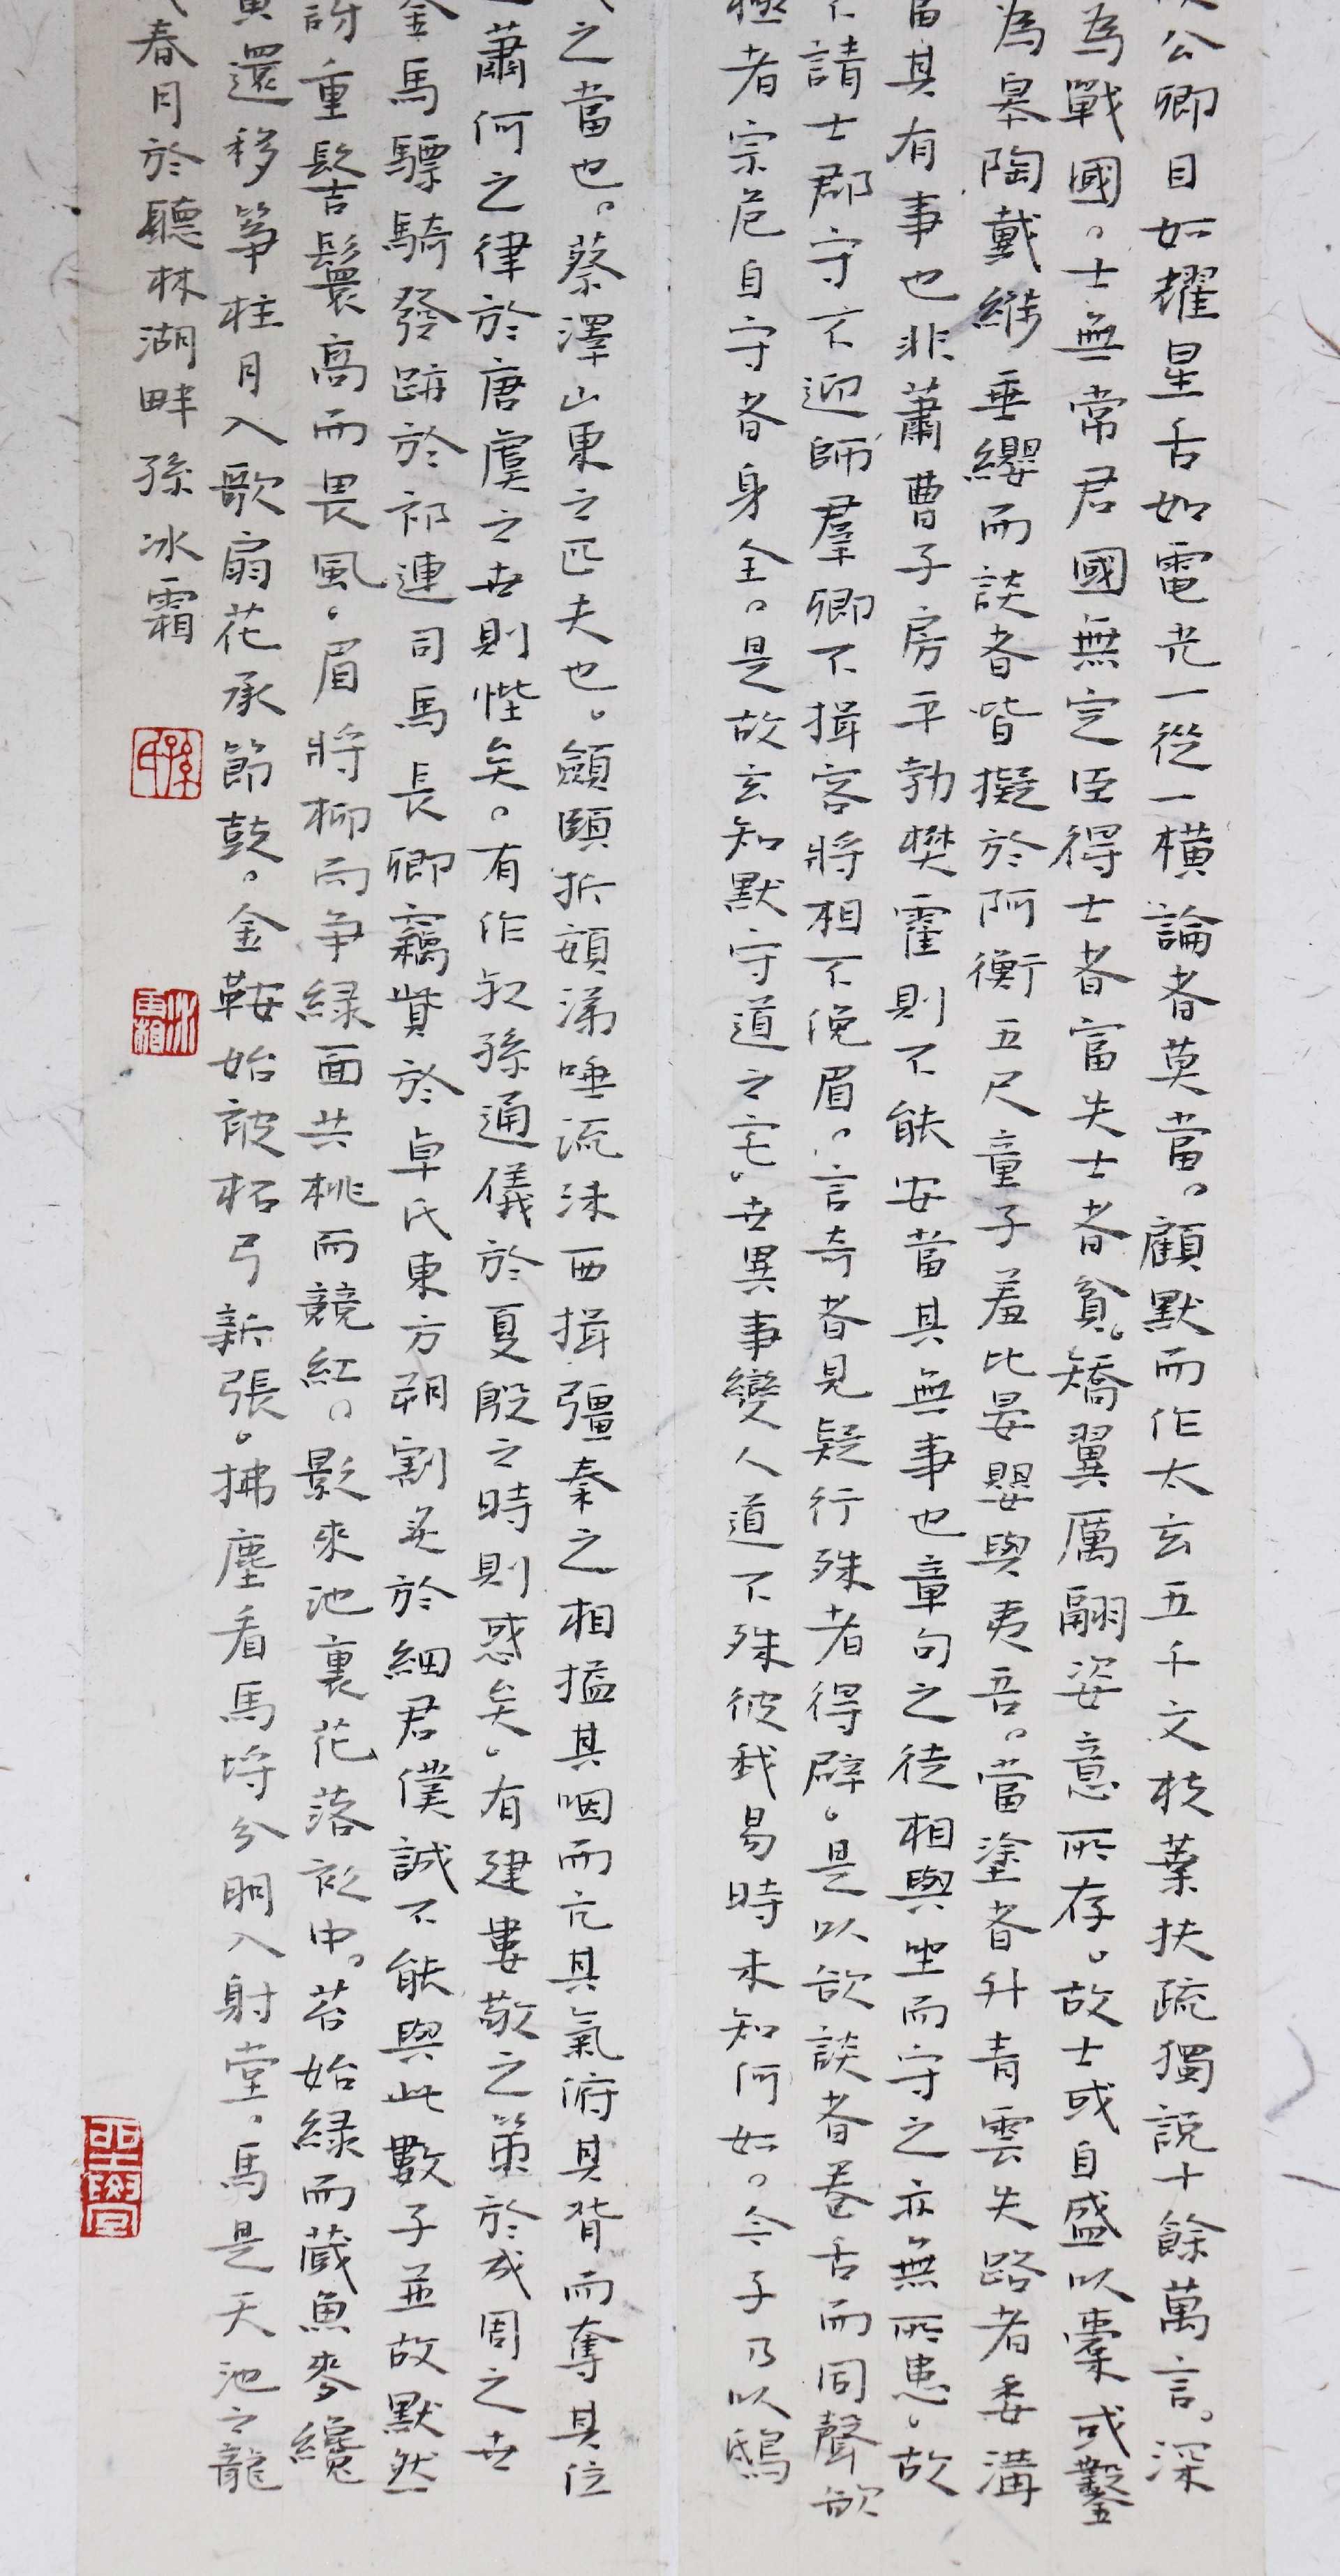 公卿目如耀星舌如電光一從一橫論者莫當。顧默而作太玄五千文枝葉扶疏獨說十餘萬言。深
為戰國。士無常君國無定臣得士者富失士者貧。矯翼厲翮姿意所存。故士或自盛以橐或鑿
為皋陶戴縰垂纓而談者皆擬於阿衡五尺童子羞比晏嬰與夷吾。當塗者升青雲失路者委溝
當其有事也非蕭曹子房平勃樊霍則不能安當其無事也章句之徒相與坐而守之亦無所患。故
不請士郡守不迎師群卿不揖客將相不俛眉。言奇者見疑行殊者得辟。是以欲談者卷舌而同聲欲
極者宗危自守者身全。是故玄知默守道之宅。世異事變人道不殊彼我易時未知何如。今子乃以鴟
之當也。蔡澤山東之匹夫也。顩頤折頞涕唾流沫西揖彊秦之相搤其咽而亢其氣拊其背而奪其位
蕭何之律於唐虞之世則悖矣。有作叔孫通儀於夏殷之時則惑矣。有建婁敬之策於成周之世
金馬驃騎發跡於祁連司馬長卿竊貲於卓氏東方朔割炙於細君僕誠不能與此數子並故默然
訝重髻鬟高而畏風。眉將柳而爭綠面共桃而競紅。影來池裏花落衫中。苔始綠而藏魚麥纔
還移箏柱月入歌扇花承節鼓。金鞍始被柘弓新張。拂塵看馬埒分朋入射堂。馬是天池之龍
春月於聽林湖畔孫冰霜
孫
冰霜